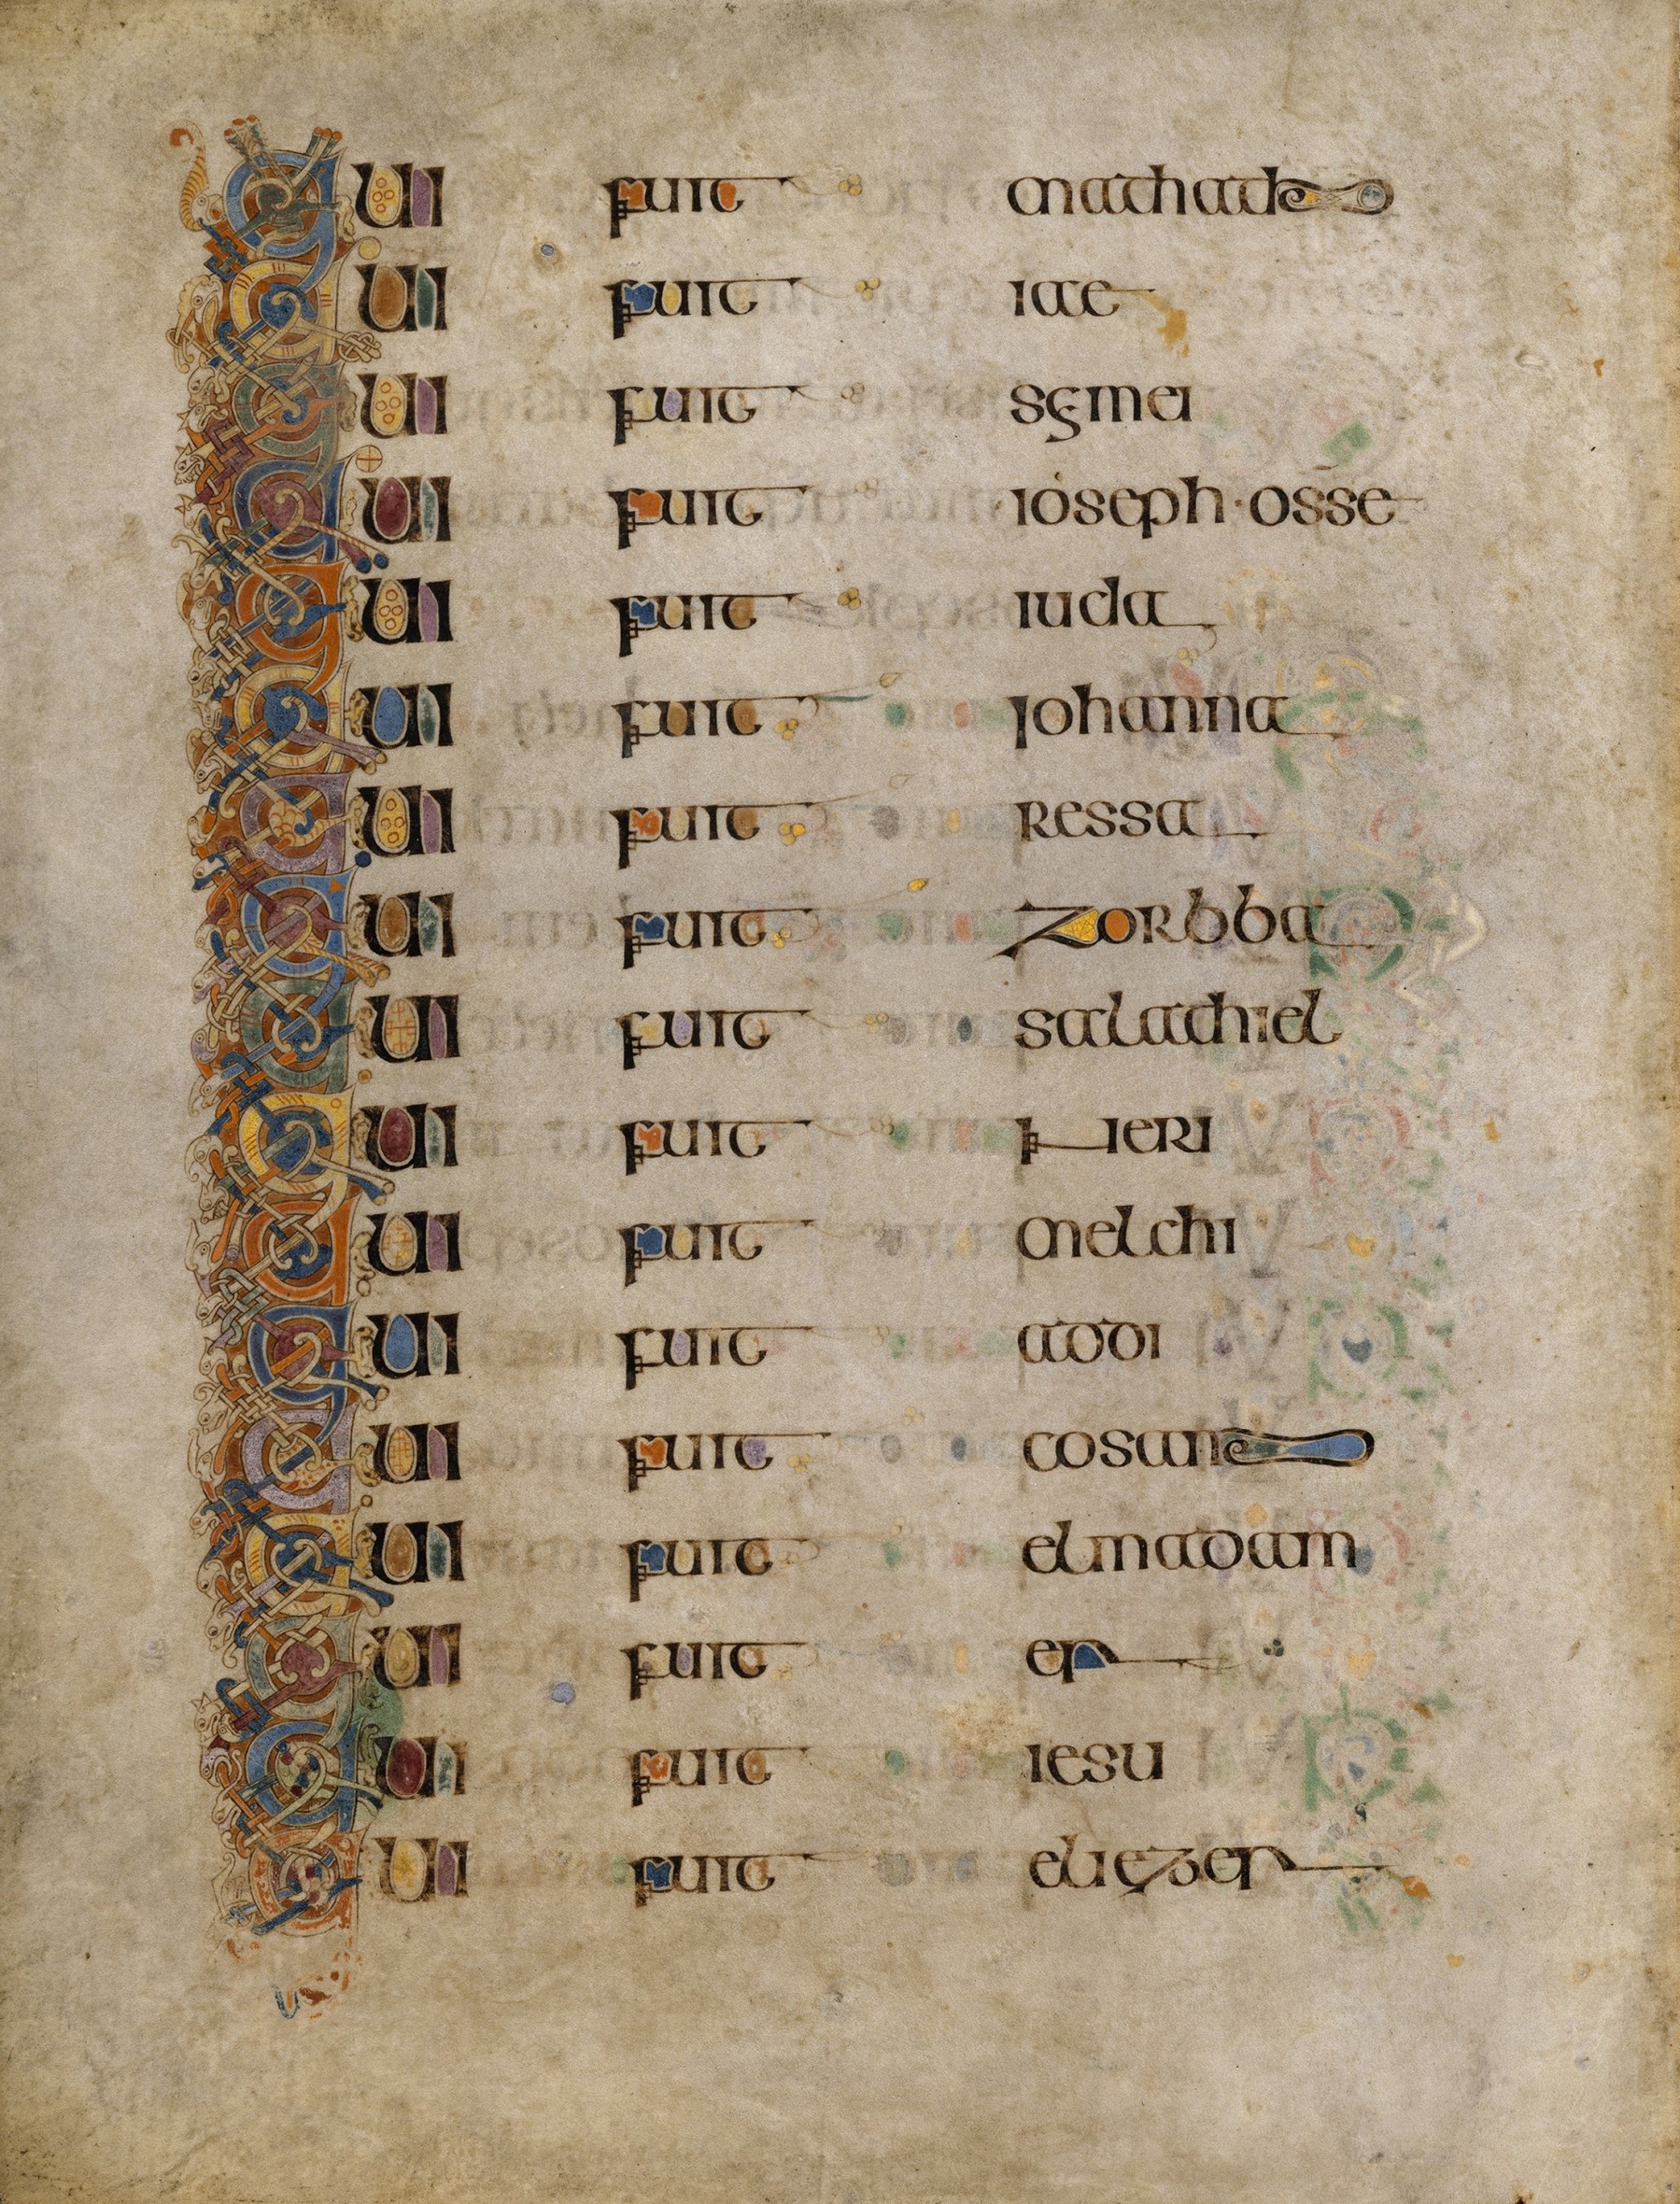 Qui fuit mathath
Qui fuit iae
Qui fuit semei
Qui fuit ioseph · osse
Qui fuit iuda
Qui fuit iohanna
Qui fuit ressa
Qui fuit zorbba
Qui fuit salathiel
Qui fuit neri
Qui fuit melchi
Qui fuit addi
Qui fuit cosam
Qui fuit elmadam
Qui fuit er
Qui fuit iesu
Qui fuit eliezer